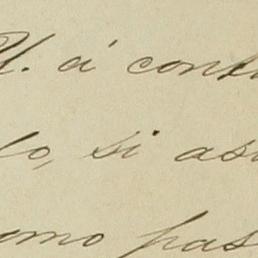 V. á cont
lo, si as
omo pas